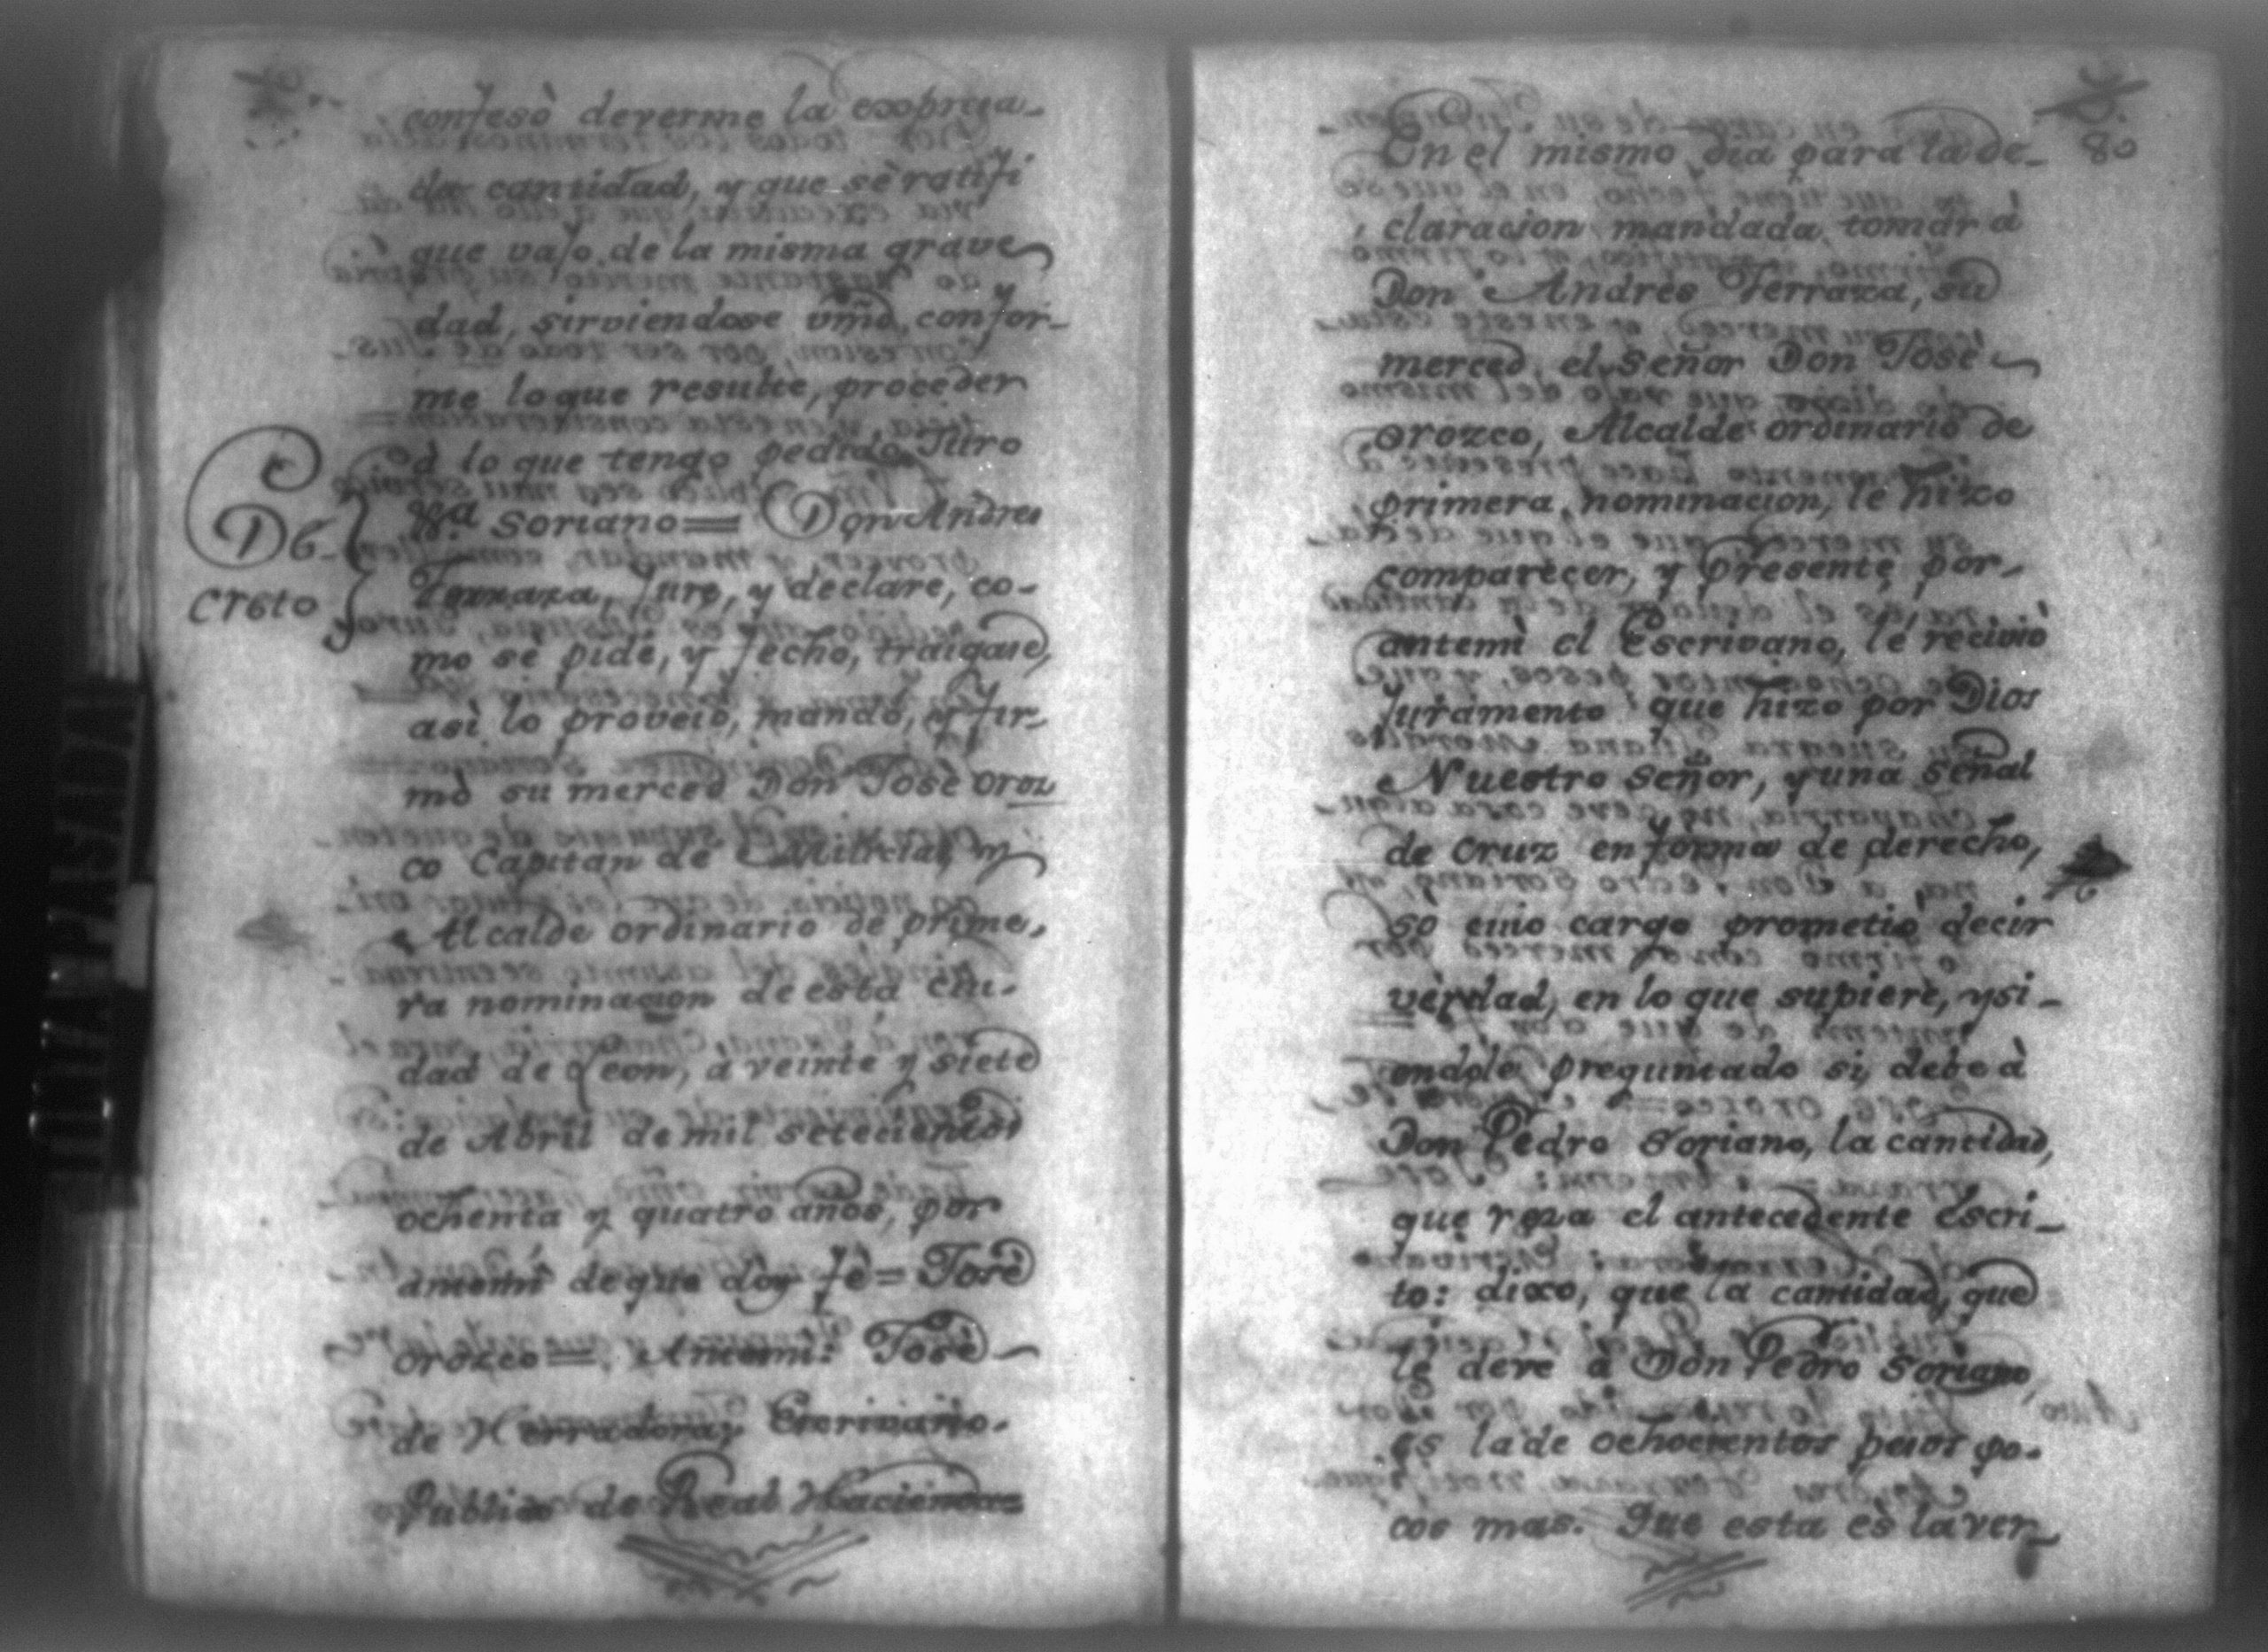 confesò deverme la expresa-
da cantidad, y que sè ratifi
què vajo de la misma grave
dad, sirviendose vmd, confor-
me lo que resulte, proceder
à lo que tengo pedido, Juro
&a. Soriano = Don Andres
De-
creto
Terraza, Jure, y declare, co-
mo se pide, y fecho, traigase,
asì lo proveiò, mandò, y fir-
mò su merced Don Josè Oroz
co Capitan de Milicias, y
Alcalde ordinario de prime,
ra nominacion de esta ciu-
dad de Leon, à veinte y siete
de Abril de mil setecientos
ochenta y quatro años, por
antemì de que doy fè = Josè
Orozco =. Antemì: Josè
de Herradora, Escrivano.
Publico de Real Hacienda =
80
En el mismo dia para la de-
claracion mandada tomar à
Don Andres Terraza, su
merced, el Señor Don Josè
Orozco, Alcalde ordinario de
primera nominacion, le hizo
comparecer, y presente por
antemì el Escrivano, le reciviò
juramento que hizo por Dios
Nuestro Señor, y una señal
de cruz en forma de derecho,
sò cuio cargo prometiò decir
vèrdad, en lo que supiere, y si-
endole preguntado si debe à
Don Pedro Soriano, la cantidad,
que reza el antecedente Escri-
to: dixo, que la cantidad, que
le deve à Don Pedro Soriano,
es la de ochocientos pesos po-
cos mas. Que esta ès la ver